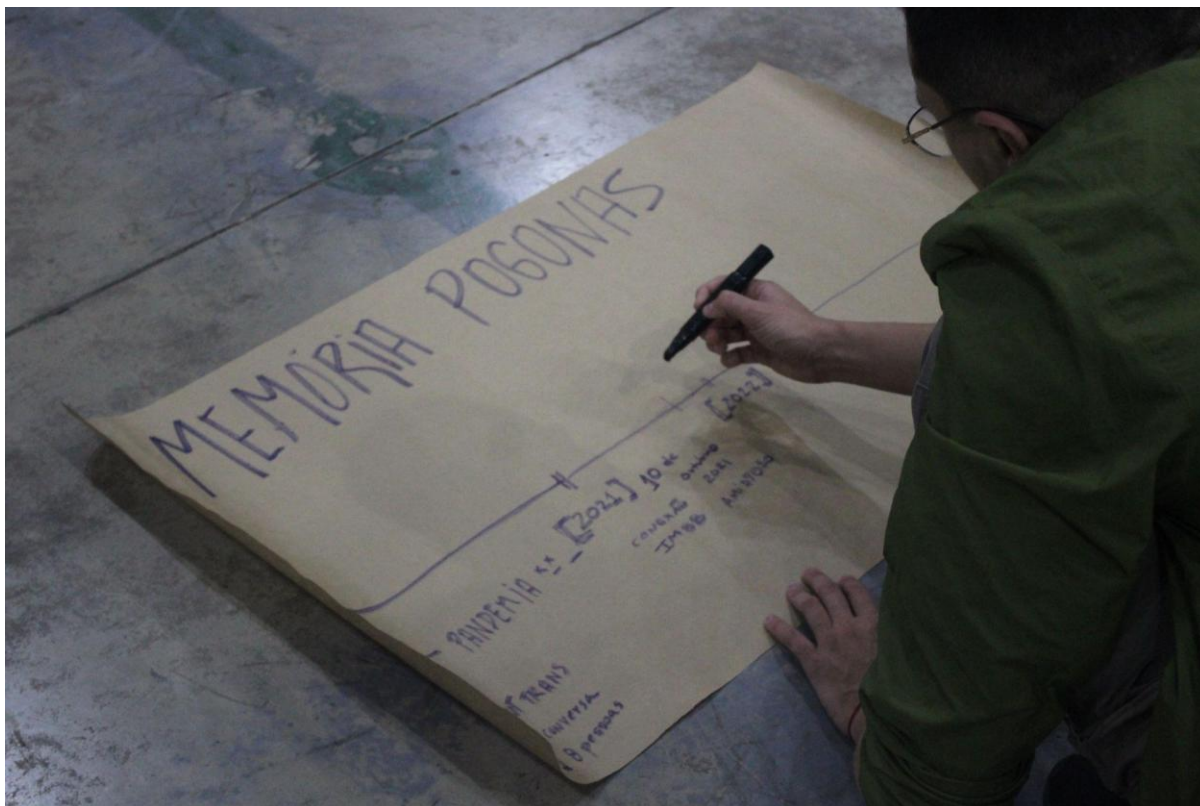 MEMÓRIA POGONAS
PANDEMIA
[2021]
10 de
2021
CONEXÃO
IMBB
[2022]
TRANS
CONVERSA
8 pessoas